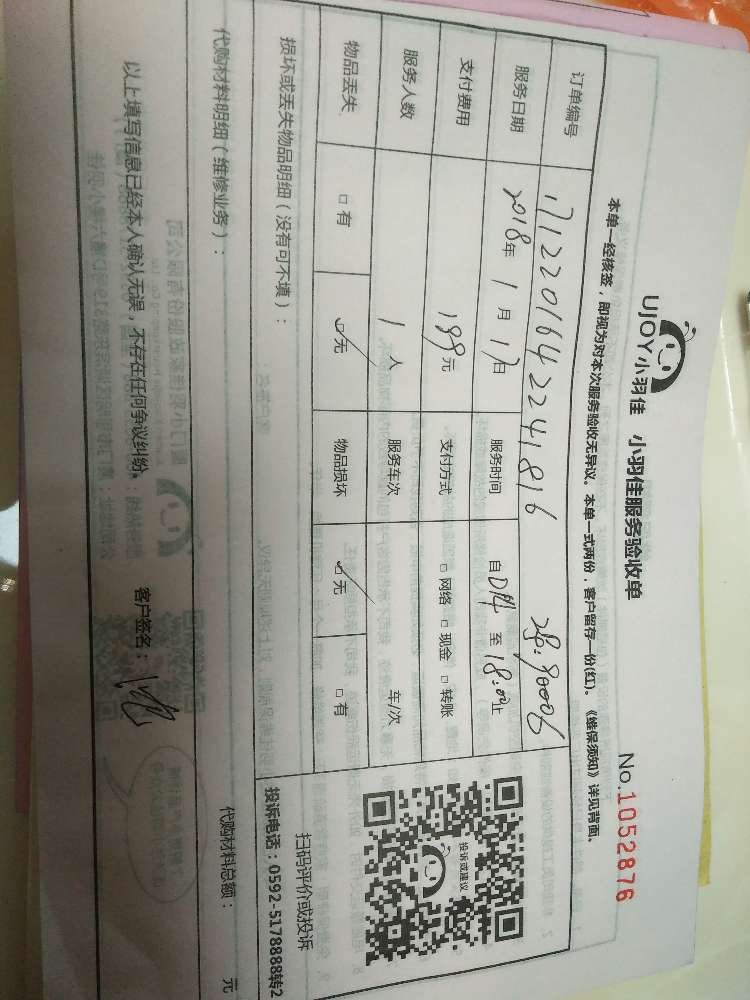 UJOY小羽佳 小羽佳服务验收单
No.1052876
本单一经核签，即视为对本次服务验收无异议。本单一式两份，客户留存一份(红)。《维保须知》详见背面。
订单编号 171220164224181 6
服务日期 2018年 1月 17日 服务时间 自 至 18:00止
支付费用 199元 支付方式 □网络 □现金 □转账
服务人数 1 人 服务车次 车/次
物品丢失 □有 ☑无 物品损坏 ☑无 □有
投诉或建议
扫码评价或投诉
投诉电话：0592-5178888转2
损坏或丢失物品明细（没有可不填）：
代购材料明细（维修业务）：
代购材料总额： 元
以上填写信息已经本人确认无误，不存在任何争议纠纷。 客户签名：